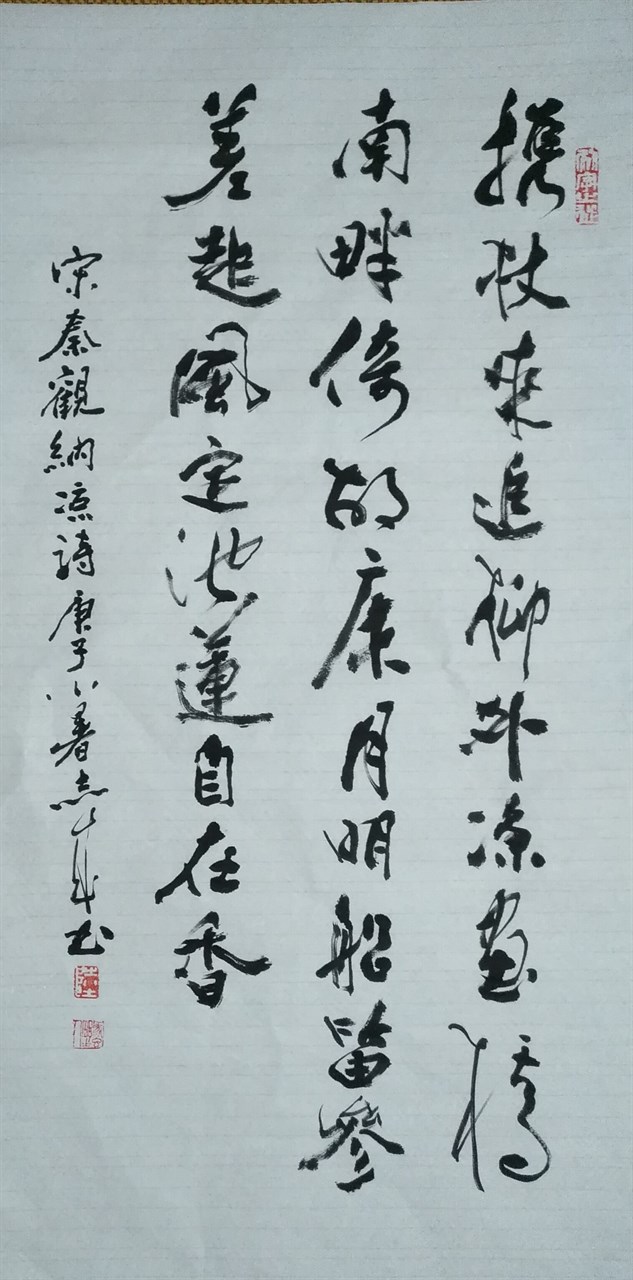 携杖來追柳外凉畫橋
南畔倚胡床月明船笛參
差起風定池蓮自在香
宋秦觀納凉詩庚子小暑志成书